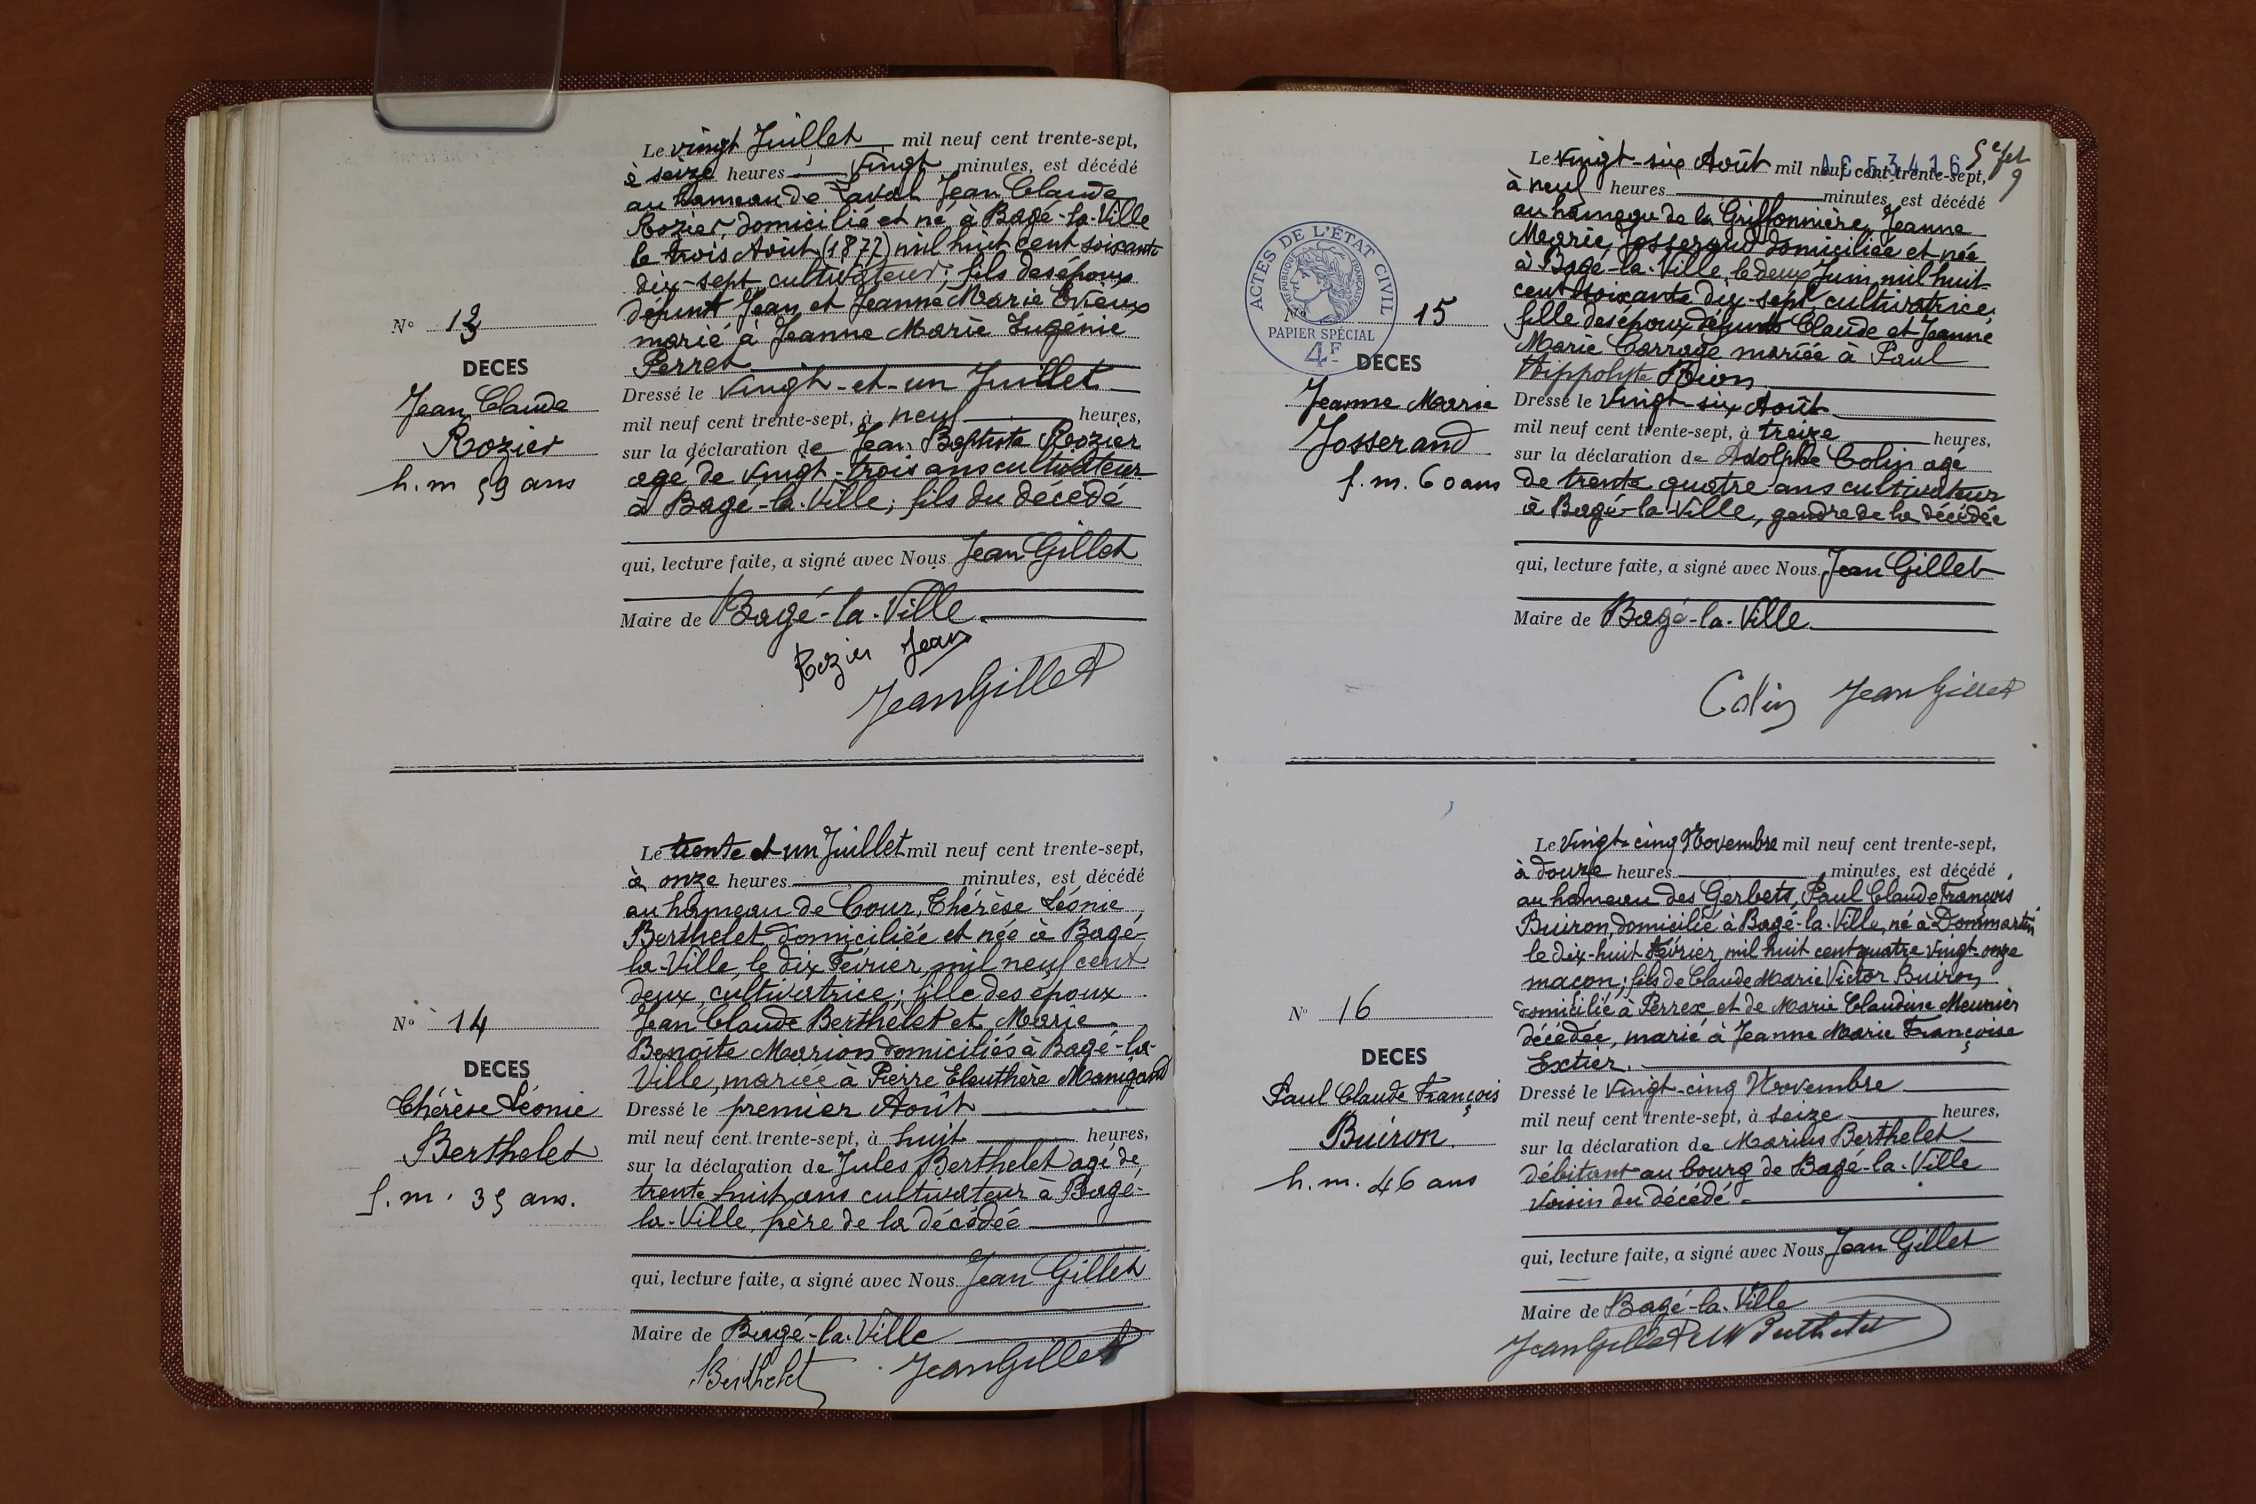 Le vingt Juillet mil neuf cent trente-sept,
à seize heures vingt minutes, est décédé
au hameau de Laval Jean Claude
Rozier, domicilié et né à Bagé-la-Ville
le trois Août (1877) mil huit cent soixante
dix-sept cultivateur; fils des époux
défunts Jean et Jeanne Marie Evieux
marié à Jeanne Marie Eugénie
Perret
N° 13
DECES
Jean Claude
Rozier
h. m 59 ans
Dressé le vingt-et-un Juillet
mil neuf cent trente-sept, à neuf heures,
sur la déclaration de Jean Baptiste Rozier
agé de vingt-trois ans cultivateur
à Bagé-la-Ville, fils du décédé
qui, lecture faite, a signé avec Nous Jean Gillet
Maire de Bagé-la-Ville
Rozier Jean
Jean Gillet
Le trente et un Juillet mil neuf cent trente-sept,
à onze heures minutes, est décédé
au hameau de Cour, Thérèse Léonie
Berthelet domiciliée et née à Bagé-
la-Ville, le dix Février mil neuf cent
deux, cultivatrice; fille des époux
Jean Claude Berthelet et Marie
Benoîte Marion domiciliés à Bagé-la-
Ville, mariée à Pierre Eleuthère Manigand
N° 14
DECES
Thérèse Léonie
Berthelet
f. m. 35 ans.
Dressé le premier Août
mil neuf cent trente-sept, à huit heures,
sur la déclaration de Jules Berthelet agé de
trente huit ans cultivateur à Bagé-
la-Ville, frère de la décédée
qui, lecture faite, a signé avec Nous Jean Gillet
Maire de Bagé-la-Ville
Berthelet Jean Gillet
5e fet
9
AC 53416
Le vingt-six Août mil neuf cent trente-sept,
à neuf heures minutes, est décédé
au hameau de la Griffonnière, Jeanne
Marie Josserand domiciliée et née
à Bagé-la-Ville, le deux Juin mil huit
cent soixante dix-sept cultivatrice
fille des époux défunts Claude et Jeanne
Marie Carrage mariée à Paul
Hippolyte Rion
ACTES DE L'ÉTAT CIVIL
RÉPUBLIQUE FRANÇAISE
PAPIER SPÉCIAL
4F
N° 15
DECES
Jeanne Marie
Josserand
f. m. 60 ans
Dressé le vingt-six Août
mil neuf cent trente-sept, à treize heures,
sur la déclaration de Adolphe Colin agé
de trente quatre ans cultivateur
à Bagé-la-Ville, gendre de la décédée
qui, lecture faite, a signé avec Nous Jean Gillet
Maire de Bagé-la-Ville
Colin Jean Gillet
Le vingt-cinq Novembre mil neuf cent trente-sept,
à douze heures minutes, est décédé
au hameau des Gerbets, Paul Claude François
Buiron, domicilié à Bagé-la-Ville, né à Dommartin
le dix-huit Février mil huit cent quatre vingt-onze
maçon; fils de Claude Marie Victor Buiron
domicilié à Perrex et de Marie Claudine Meunier
décédée, marié à Jeanne Marie Françoise
Extier.
N° 16
DECES
Paul Claude François
Buiron.
h. m. 46 ans
Dressé le vingt-cinq Novembre
mil neuf cent trente-sept, à seize heures,
sur la déclaration de Marius Berthelet
débitant au bourg de Bagé-la-Ville
voisin du décédé
qui, lecture faite, a signé avec Nous Jean Gillet
Maire de Bagé-la-Ville
Jean Gillet M Berthelet